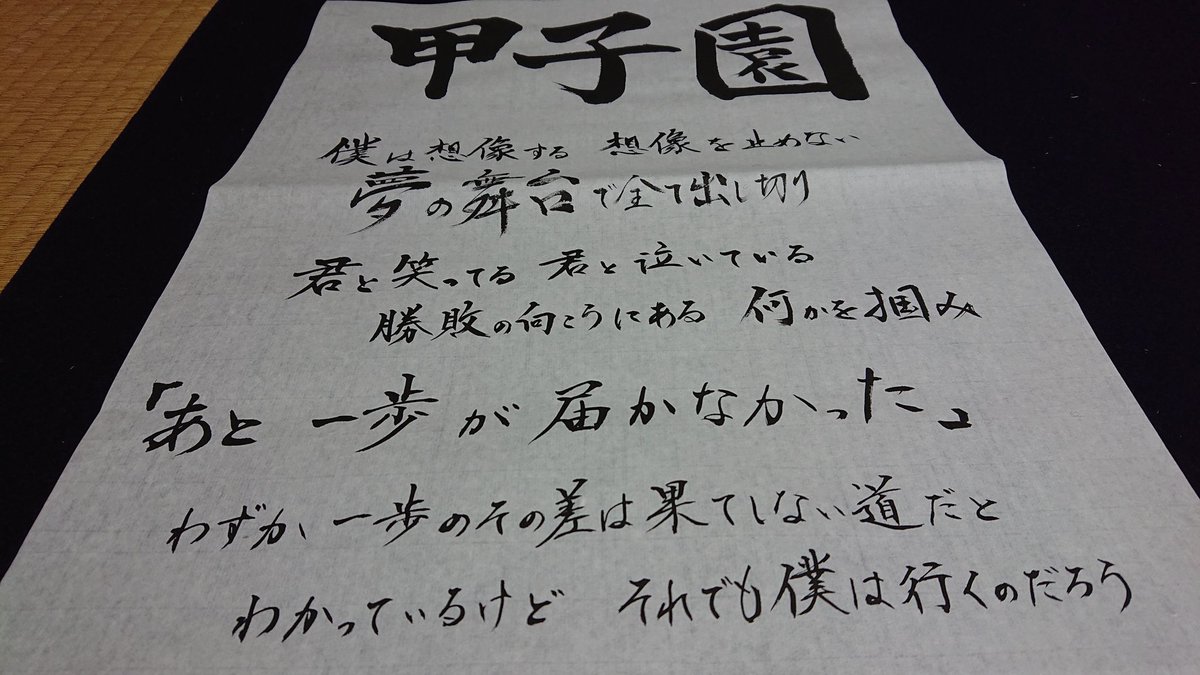 甲子園
僕は想像する 想像を止めない
夢の舞台で全て出し切り
君と笑ってる 君と泣いている
勝敗の向こうにある 何かを掴み
「あと 一歩が届かなかった」
わずか、一歩のその差は果てしない道だと
わかっているけど それでも僕は行くのだろう